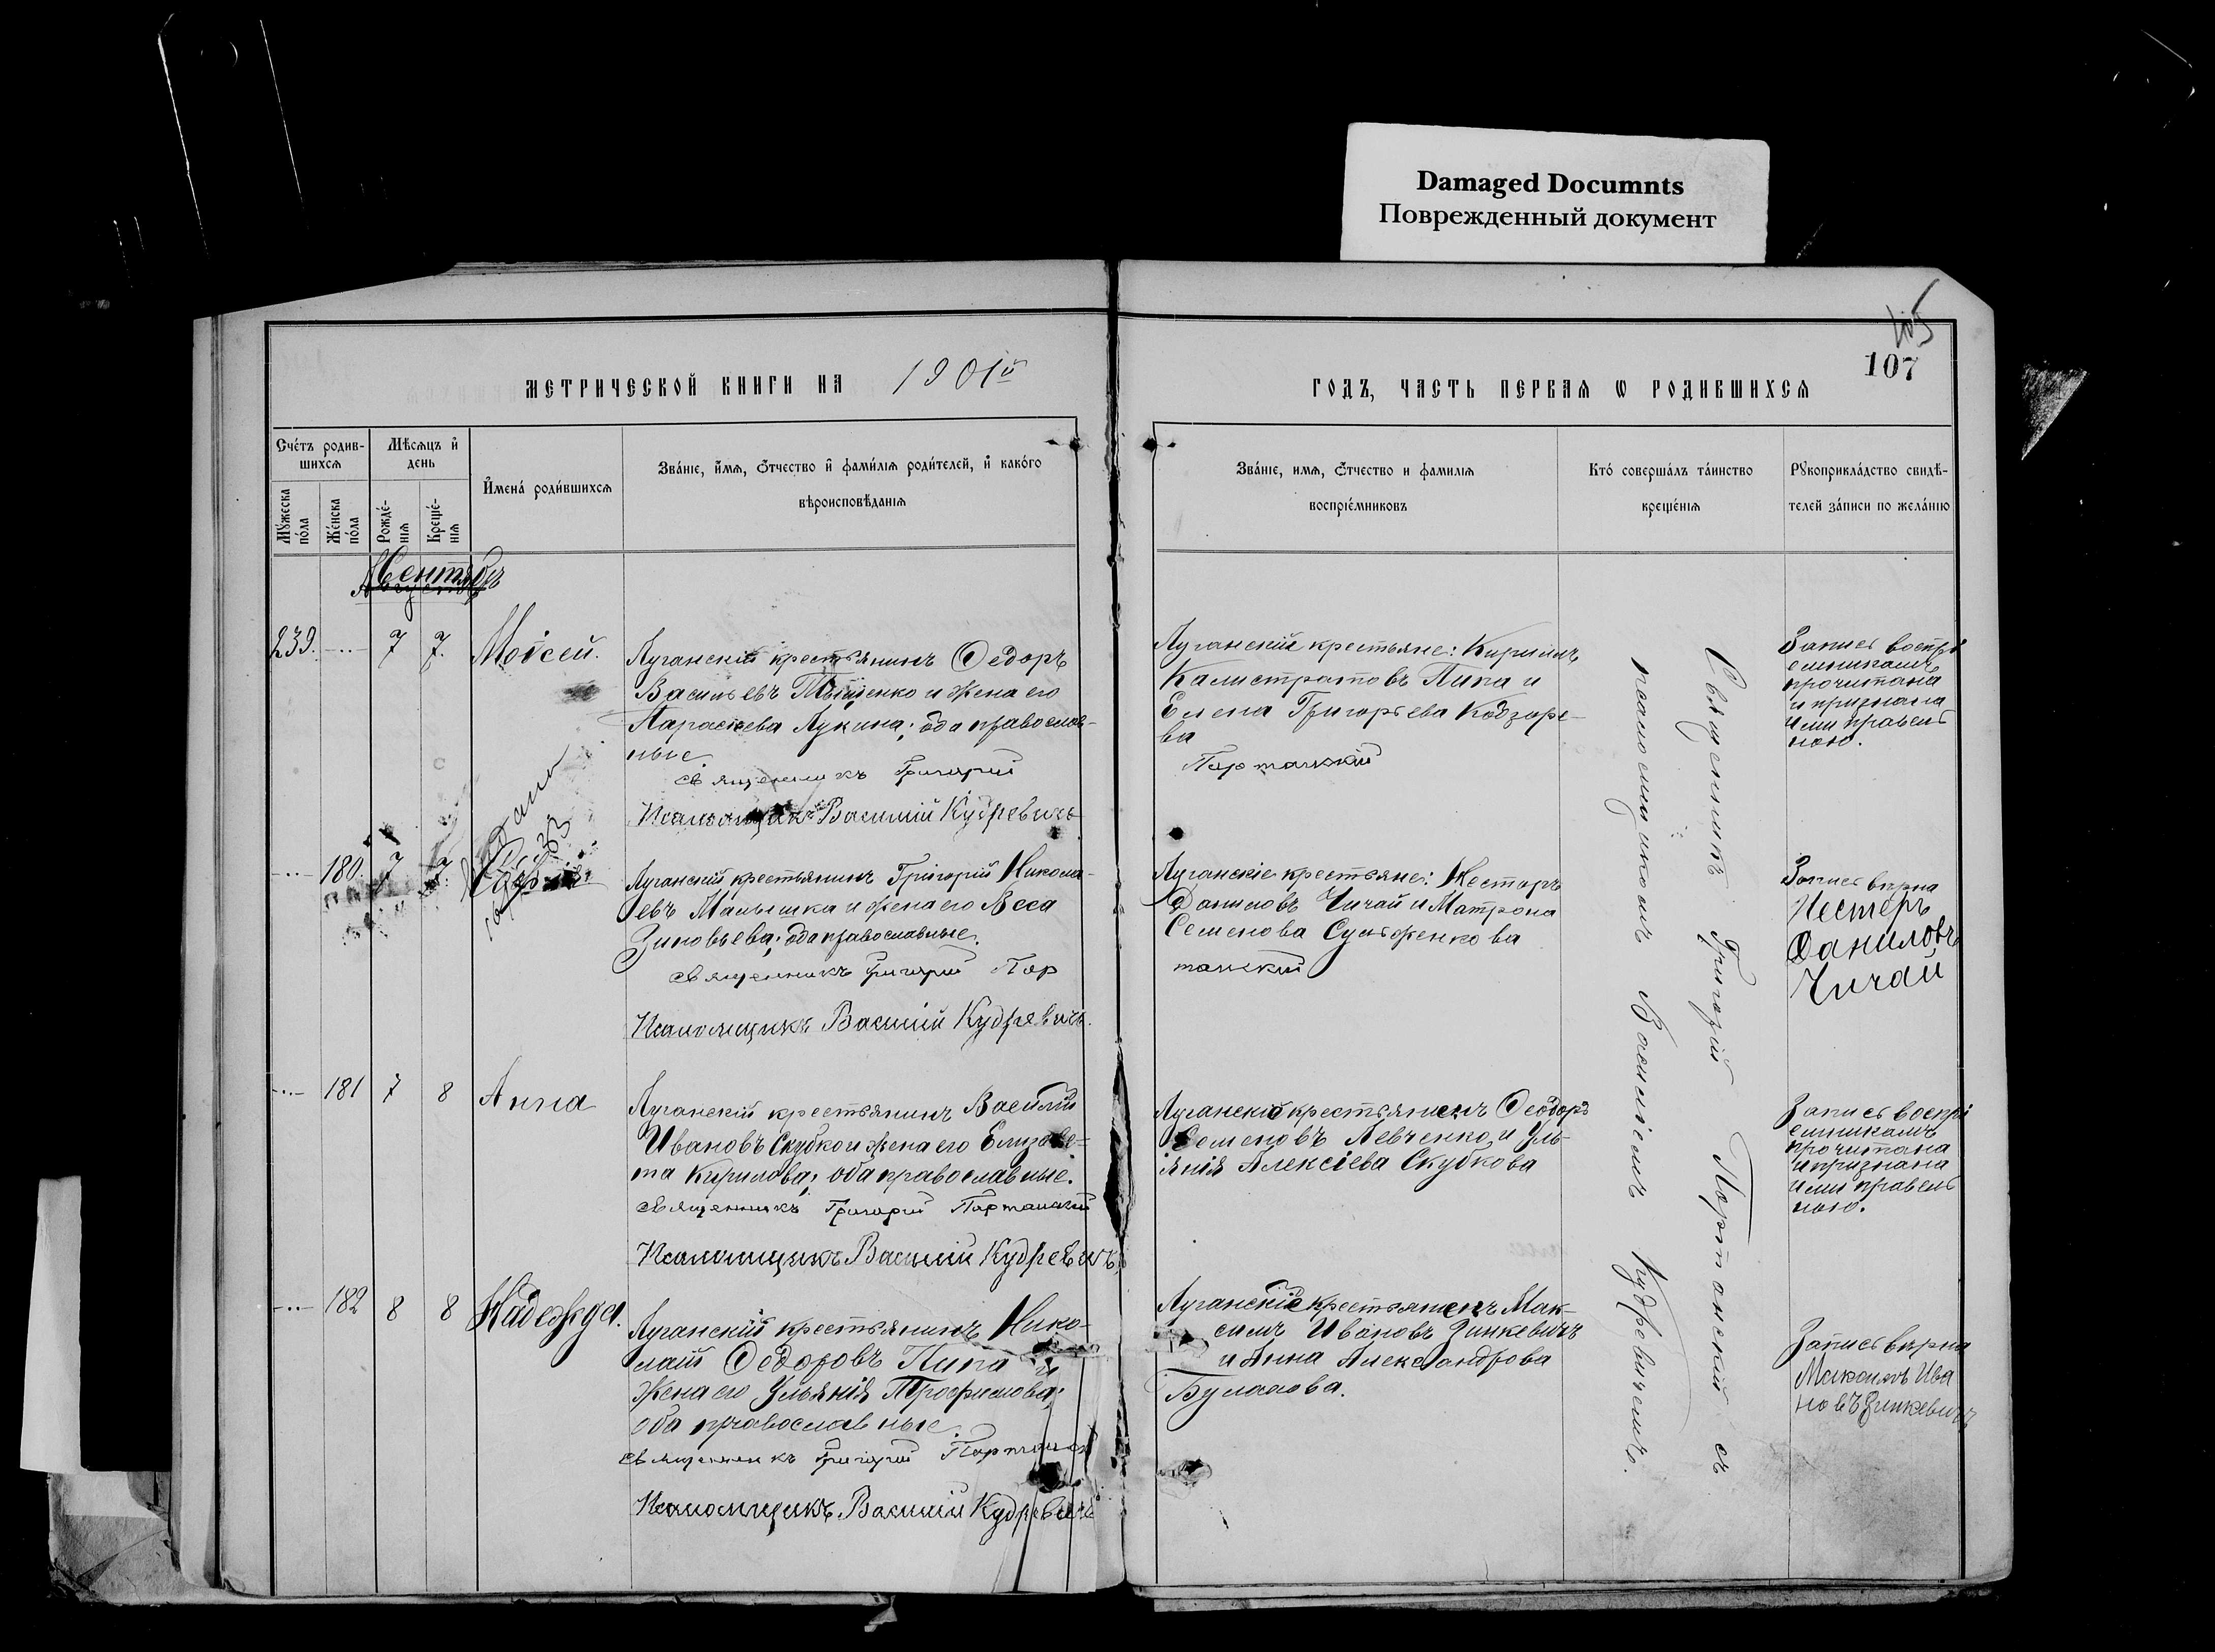 Damaged Documnts
Поврежденный документ
105
107
МЕТРИЧЕСКОЙ КНИГИ НА 1901й
ГОДЪ, ЧАСТЬ ПЕРВАЯ Ѡ РОДИВШИХСЯ
Счетъ родив-
шихся
Мѣсяцъ и
день
Имена родившихся
Званіе, имя, отчество и фамилія родителей, и какого
вѣроисповѣданія
Мужеска
пола
Женска
пола
Рожде-
нія
Креще-
нія
Званіе, имя, отчество и фамилія
воспріемниковъ
Кто совершалъ таинство
крещенія
Рукоприкладство свидѣ-
телей записи по желанію
Сентябрь
239. 7 7. Моисей.
Луганскій крестьянинъ Ѳедоръ
Васильевъ и жена его
Параскева Лукина; оба православ-
ные.
священникъ Григорій
Псаломщикъ Василій Кудревичъ
Луганскіе крестьяне: Кирилъ
Калистратовъ Липа и
Елена Григорьева Кобзаре-
ва
Портанскій
Запись воспрі
емникамъ
прочитана
и признана
ими правель
ною.
180. 7 7.
Луганскій крестьянинъ Григорій Никола-
евъ Малышка и жена его
Зиновьева; оба православные.
священникъ Григорій Пор
Псаломщикъ Василій Кудревичъ.
Луганскіе крестьяне: Несторъ
Даниловъ Чичай и Матрона
Семенова
танскій
Запись вѣрна
Нестеръ
Даниловъ
Чичай
181 7 8 Анна
Луганскій крестьянинъ Василій
Ивановъ Скубко и жена его Елизаве-
та Кирилова; оба православные.
священникъ Григорій Портанскій
Псаломщикъ Василій Кудревичъ
Луганскій крестьянинъ Ѳеодоръ
Семеновъ Левченко и Уль-
янія Алексіева Скубкова
Запись воспрі
емникамъ
прочитана
и признана
ими правель
ною.
182 8 8 Надежда.
Луганскій крестьянинъ Нико-
лай Ѳедоровъ Липа и
жена его Ульянія Трофимова;
оба православные.
священникъ Григорій Портанскій
Псаломщикъ Василій Кудревичъ
Луганскій крестьянинъ Мак-
симъ Ивановъ Зинкевичъ
и Анна Александрова
Булахова.
Запись вѣрна
Максимъ Ива
новъ Зинкевичъ
Священникъ Григорій Портанскій съ
псаломщикомъ Василіемъ Кудревичемъ.